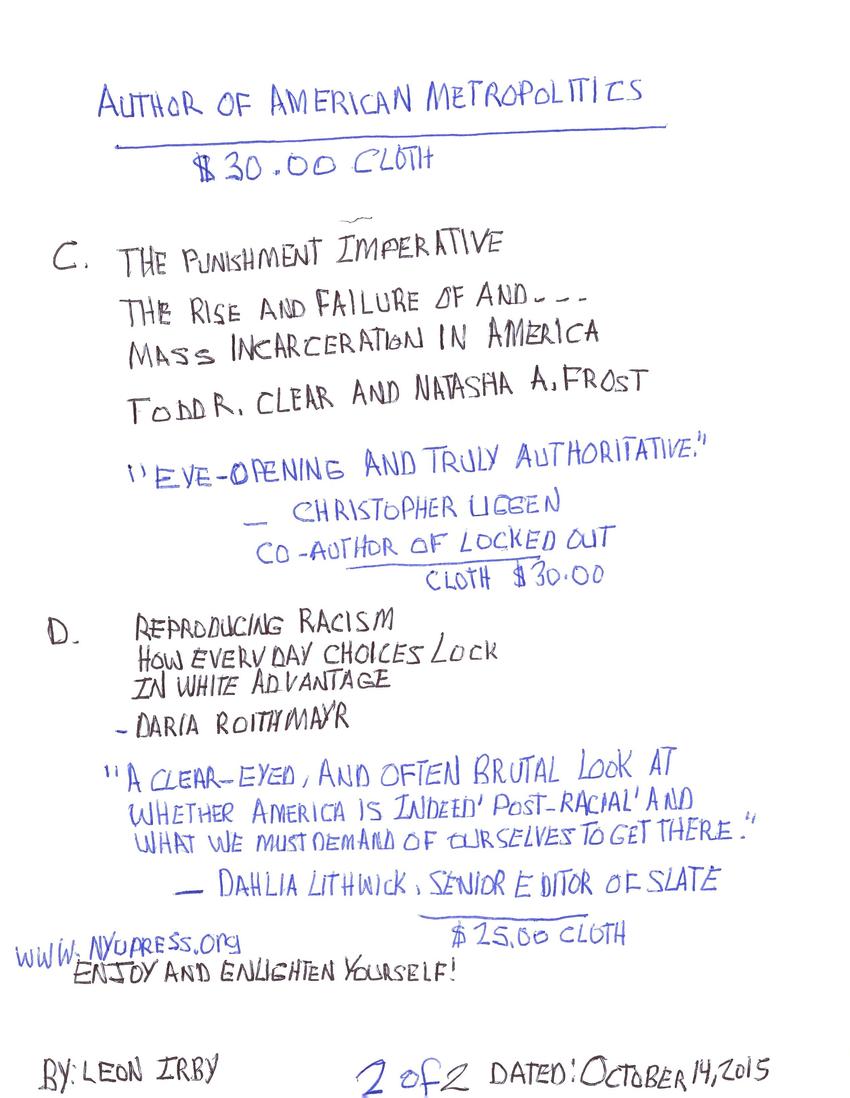 AUTHOR OF AMERICAN METROPOLITICS
$30.00 CLOTH
C. THE PUNISHMENT IMPERATIVE
THE RISE AND FAILURE OF AND---
MASS INCARCERATION IN AMERICA
TODD R. CLEAR AND NATASHA A. FROST
"EYE-OPENING AND TRULY AUTHORITATIVE."
— CHRISTOPHER UGGEN
CO-AUTHOR OF LOCKED OUT
CLOTH $30.00
D. REPRODUCING RACISM
HOW EVERYDAY CHOICES LOCK
IN WHITE ADVANTAGE
- DARIA ROITHMAYR
"A CLEAR-EYED, AND OFTEN BRUTAL LOOK AT
WHETHER AMERICA IS INDEED 'POST-RACIAL' AND
WHAT WE MUST DEMAND OF OURSELVES TO GET THERE."
— DAHLIA LITHWICK, SENIOR EDITOR OF SLATE
$25.00 CLOTH
WWW.NYUPRESS.Org
ENJOY AND ENLIGHTEN YOURSELF!
BY: LEON IRBY 2 of 2 DATED: OCTOBER 14, 2015